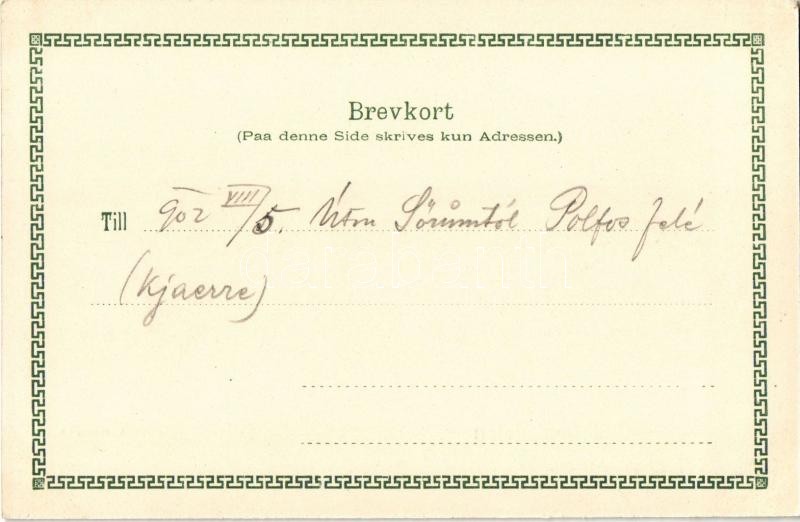 Brevkort
(Paa denne Side skrives kun Adressen.)
Till 902 VIII/5. Úton Sörůmtól Polfos felé
(Kjaerre)